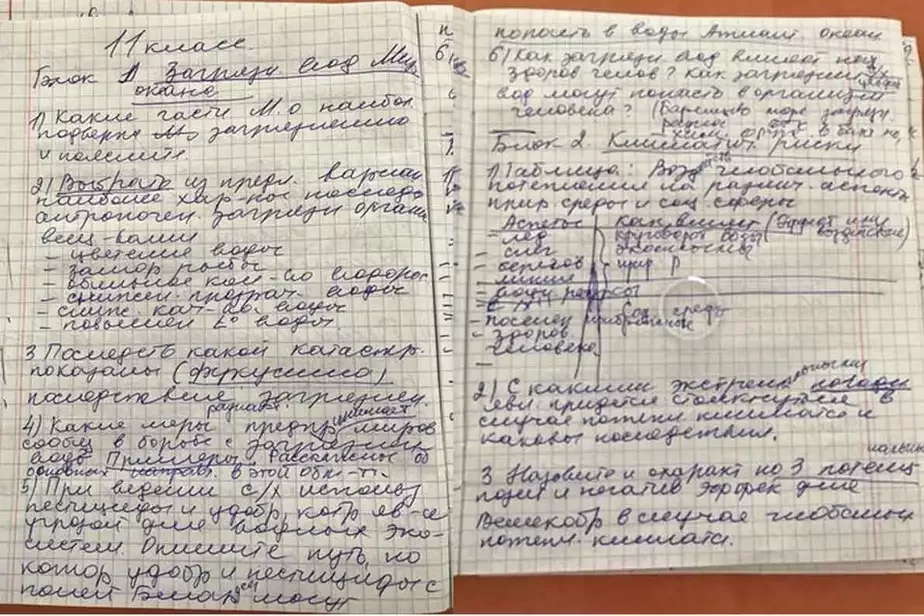 11 класс.
Блок 1 Загрязн вод Мир
океана
1) Какие части М.О наибол
подверже загрязнению
и поясните
2) Выбрать из предл. вариан
наиболее хар-ные последс
антропоген. загрязн органи
вещ-вами
- цветение воды
- замор рыбы
- обильное кол-во водорос
- снижен. прозрач. воды
- сниж кач-ва воды
- повышен t° воды
3 Последств какой катастр.
показаны (Фукусима)
последствие загрязнен.
радиац.
4) Какие меры предпр миров
сообщ в борьбе с загрязнением
воды Примеры. Расскажите об
основных направл. в этой обл-ти.
5) При ведении с/х использ
пестициды и удобр, котр явл-ся
угрозой для водных эко-
систем. Опишите путь, по
котор удобр и пестициды с
полей Белар могут
попасть в воды Атлант. океан
6) Как загрязн вод влияет на
здоров челов? Как загрязнен
вод могут попасть в организм
человека? (Баренцево море загрязн.
хим
Блок 2. Климатич. риски
1) Таблица: Возд глобального
потепления на различ. аспекты
прир среды и соц. сферы
Аспекты Как влияет (Эффект или воздействие)
- лёд круговорот воды
- снег экосистемы
- берегов - прир
линия
- водн ресурсы
- С/Х
- поселен прибрежные
Соц среды
- здоров.
человека
2) С какими экстремальными погодн
явл. придётся столкнуться в
случае потепл климата и
каковы последствия.
3 Назовите и охаракт по 3 потенц
позит и негатив эффек для
Беларус в случае глобальн
потепл. климата.